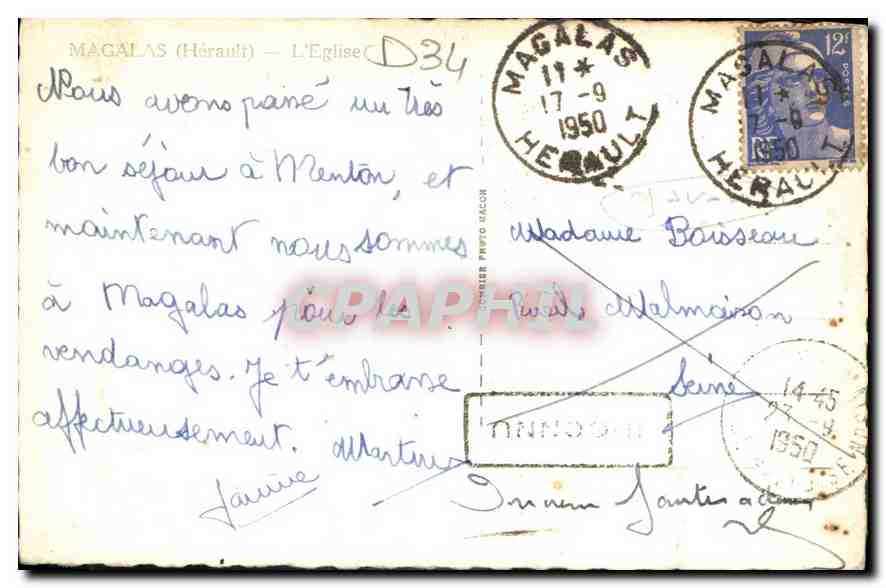 MAGALAS (Hérault) — L'Eglise
D34
Nous avons passé un très
bon séjour à Menton, et
maintenant nous sommes
à Magalas pour les
vendanges. Je t'embrasse
affectueusement. Martine
Janine
COMBIER PHOTO MACON
MAGALAS
11 *
17 -9
1950
HERAULT
12F
POSTES
RF
MAGALAS
1 *
7 -9
1950
HERAULT
Madame Boisseau
Rueil Malmaison
Seine
14-45
27 -9
1950
INCONNU
CPAPHIL